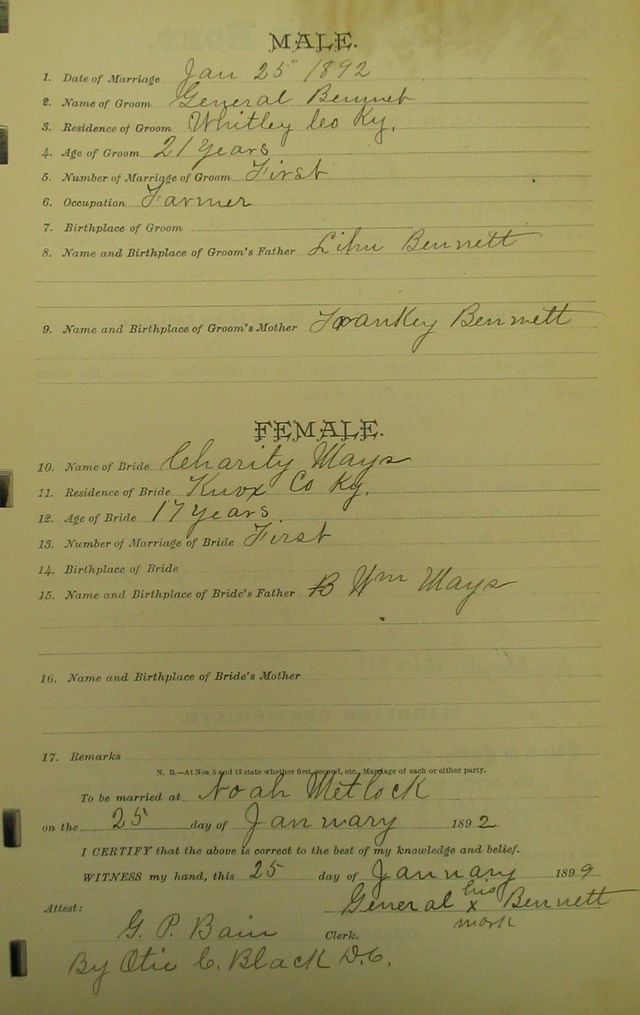 MALE.
1. Date of Marriage Jan 25" 1892
2. Name of Groom General Bennet
3. Residence of Groom Whitley Co Ky.
4. Age of Groom 21 Years
5. Number of Marriage of Groom First
6. Occupation Farmer
7. Birthplace of Groom
8. Name and Birthplace of Groom's Father Lihu Bennett
9. Name and Birthplace of Groom's Mother Frankey Bennett
FEMALE.
10. Name of Bride Charity Mays
11. Residence of Bride Knox Co Ky.
12. Age of Bride 17 years
13. Number of Marriage of Bride First
14. Birthplace of Bride
15. Name and Birthplace of Bride's Father B Wm Mays
16. Name and Birthplace of Bride's Mother
17. Remarks
N. B.—At Nos. 5 and 13 state whether first, second, etc., Marriage of each or either party.
To be married at Noah Metlock
on the 25 day of January 1892
I CERTIFY that the above is correct to the best of my knowledge and belief.
WITNESS my hand, this 25 day of January 1899
his
Attest: General x Bennett
mark
G. P. Bain Clerk.
By Otie C. Black D.C.